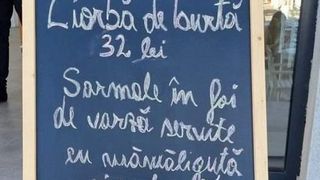 Ciorbă de burtă
32 lei
Sarmale în foi
de varză servite
cu mămăliguță